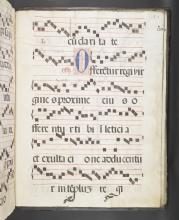 cu da ri ta te
Offeretur regi vir
gines proxime eius o
ffere ntu r ti bi leticia
et exulta ci o ne adducentur
r in templu re gi